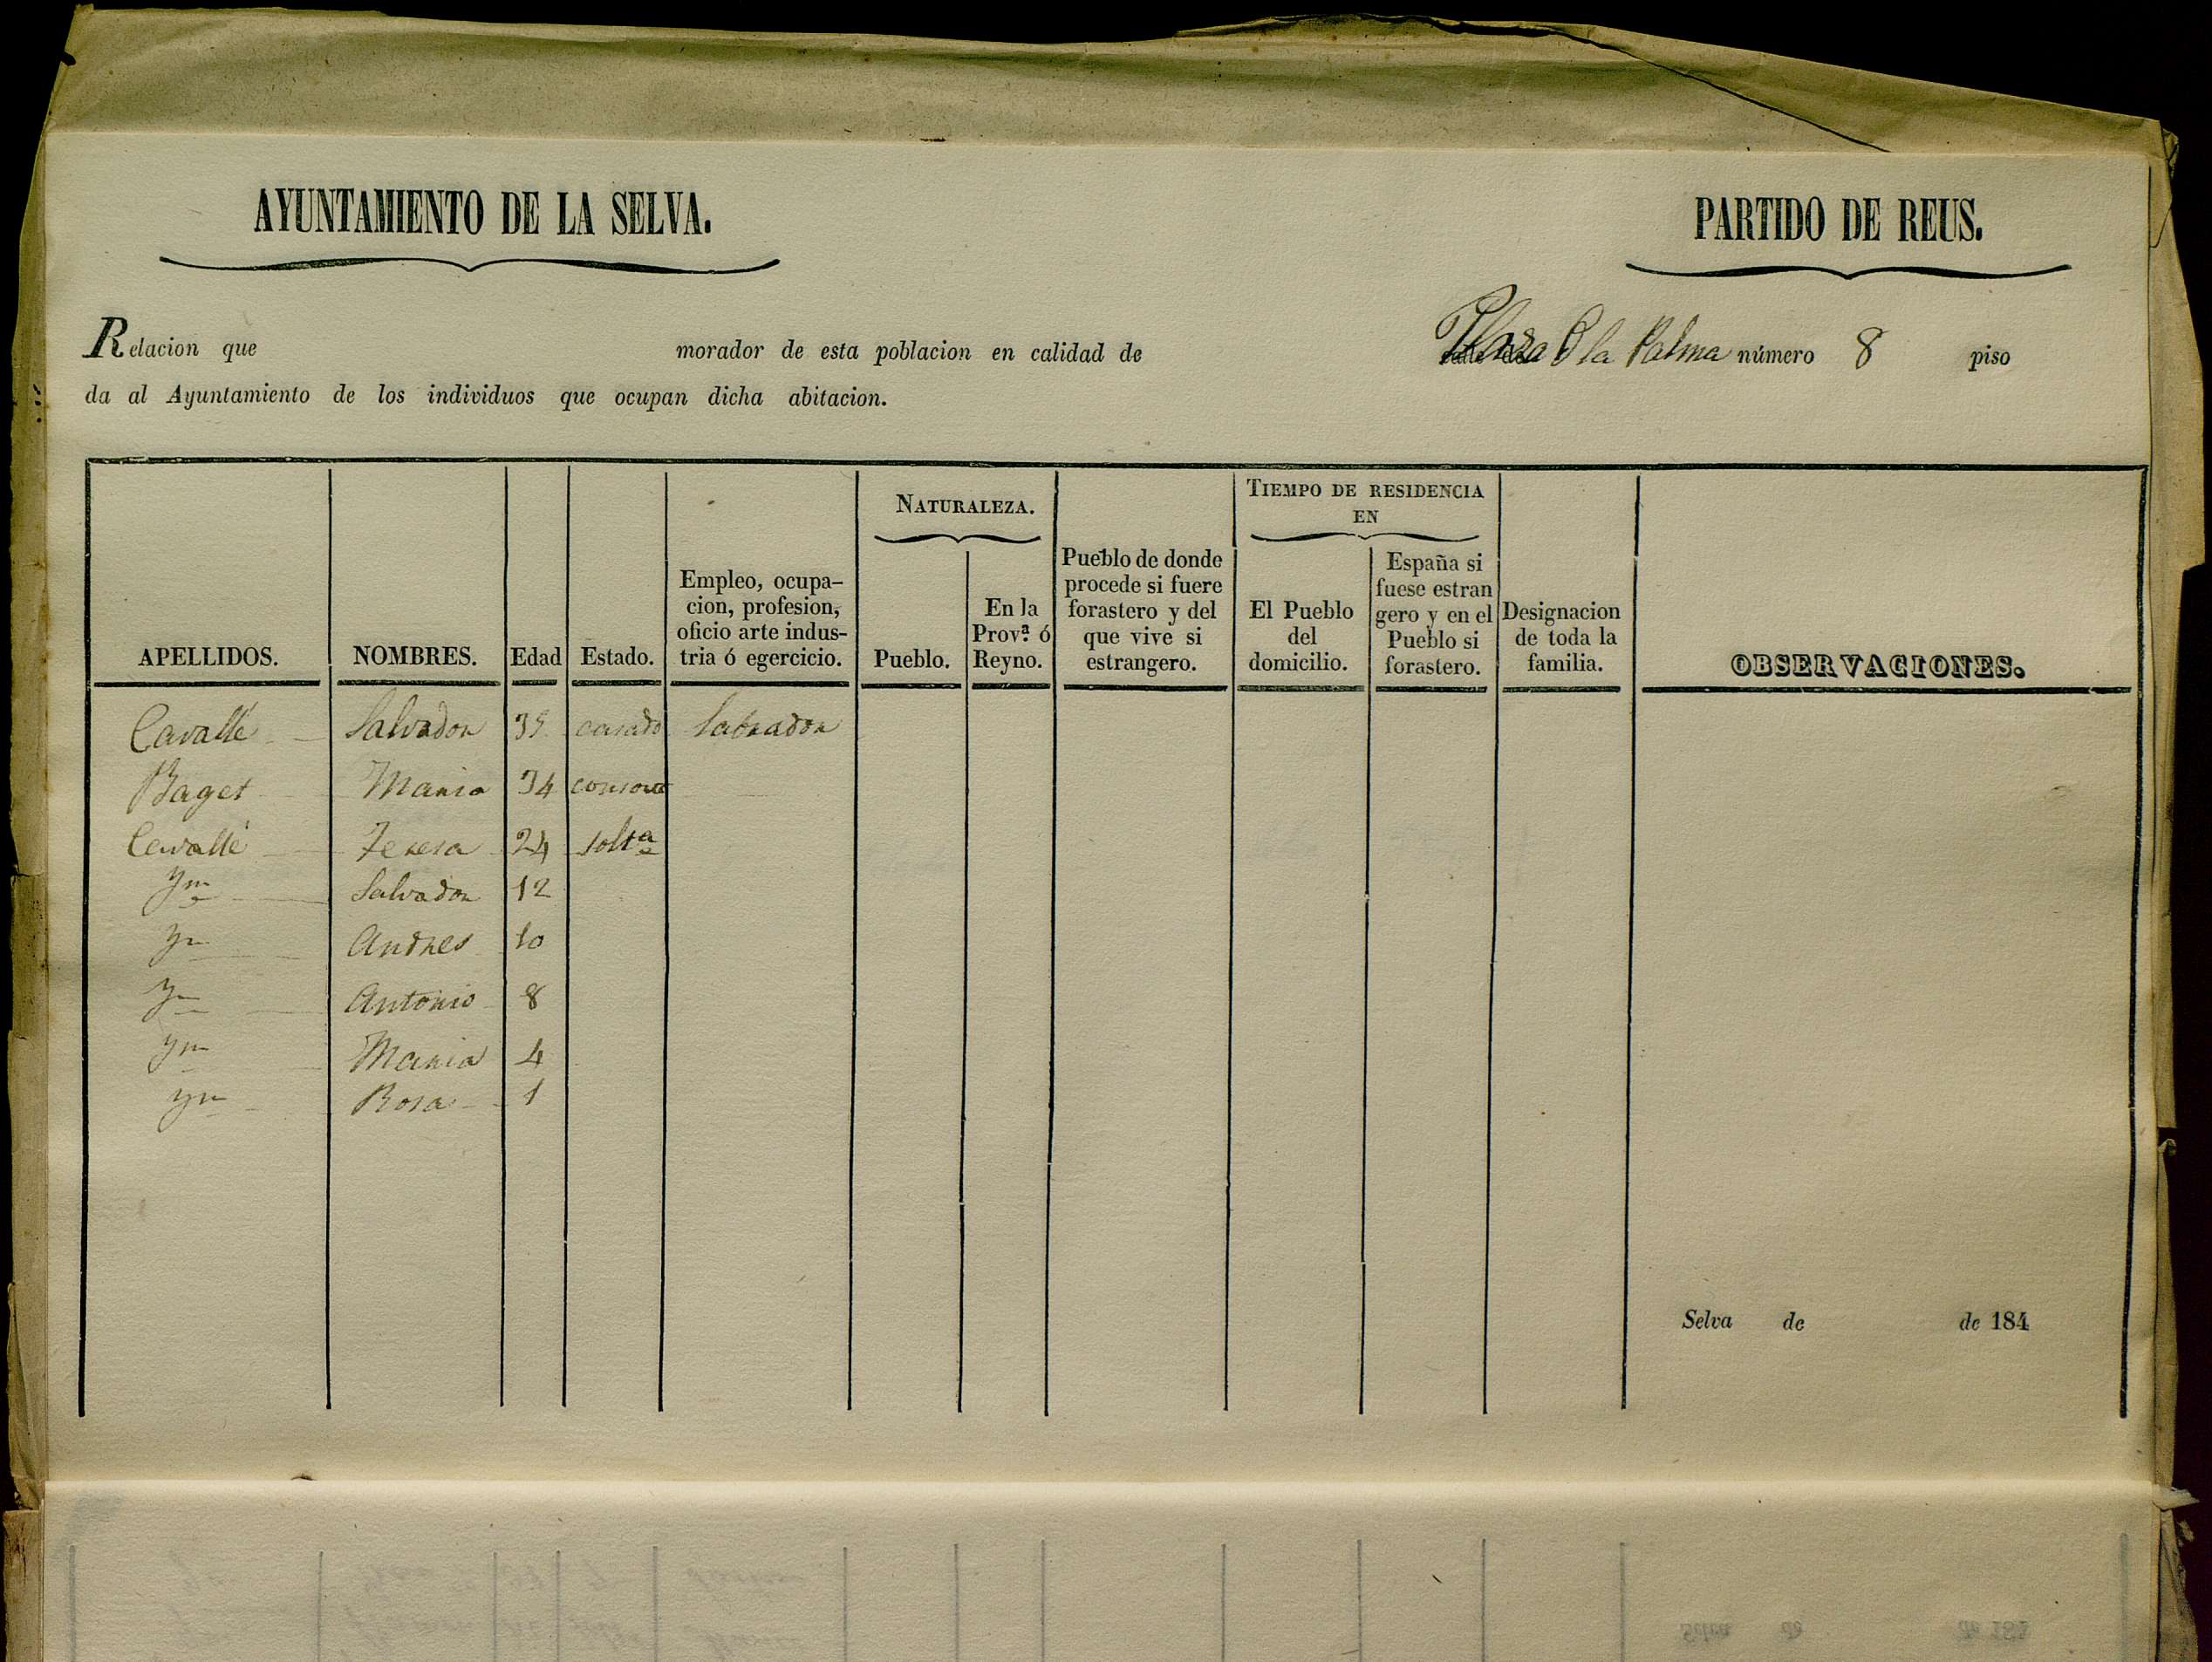 AYUNTAMIENTO DE LA SELVA.
PARTIDO DE REUS.
Relacion que morador de esta poblacion en calidad de Plaza d la Palma número 8 piso
da al Ayuntamiento de los individuos que ocupan dicha abitacion.
APELLIDOS. NOMBRES. Edad Estado. Empleo, ocupa-
cion, profesion,
oficio arte indus-
tria ó egercicio.
NATURALEZA.
Pueblo.
En la
Prov.ª ó
Reyno.
Pueblo de donde
procede si fuere
forastero y del
que vive si
estrangero.
TIEMPO DE RESIDENCIA
EN
El Pueblo
del
domicilio.
España si
fuese estran
gero y en el
Pueblo si
forastero.
Designacion
de toda la
familia.
OBSERVACIONES.
Cavallé Salvador 35 casado labrador
Baget Maria 34 consorte
Cavallé Teresa 24 solt.ª
Ym Salvador 12
Ym Andres 10
Ym Antonio 8
Ym Maria 4
Ym Rosa 1
Selva de de 184